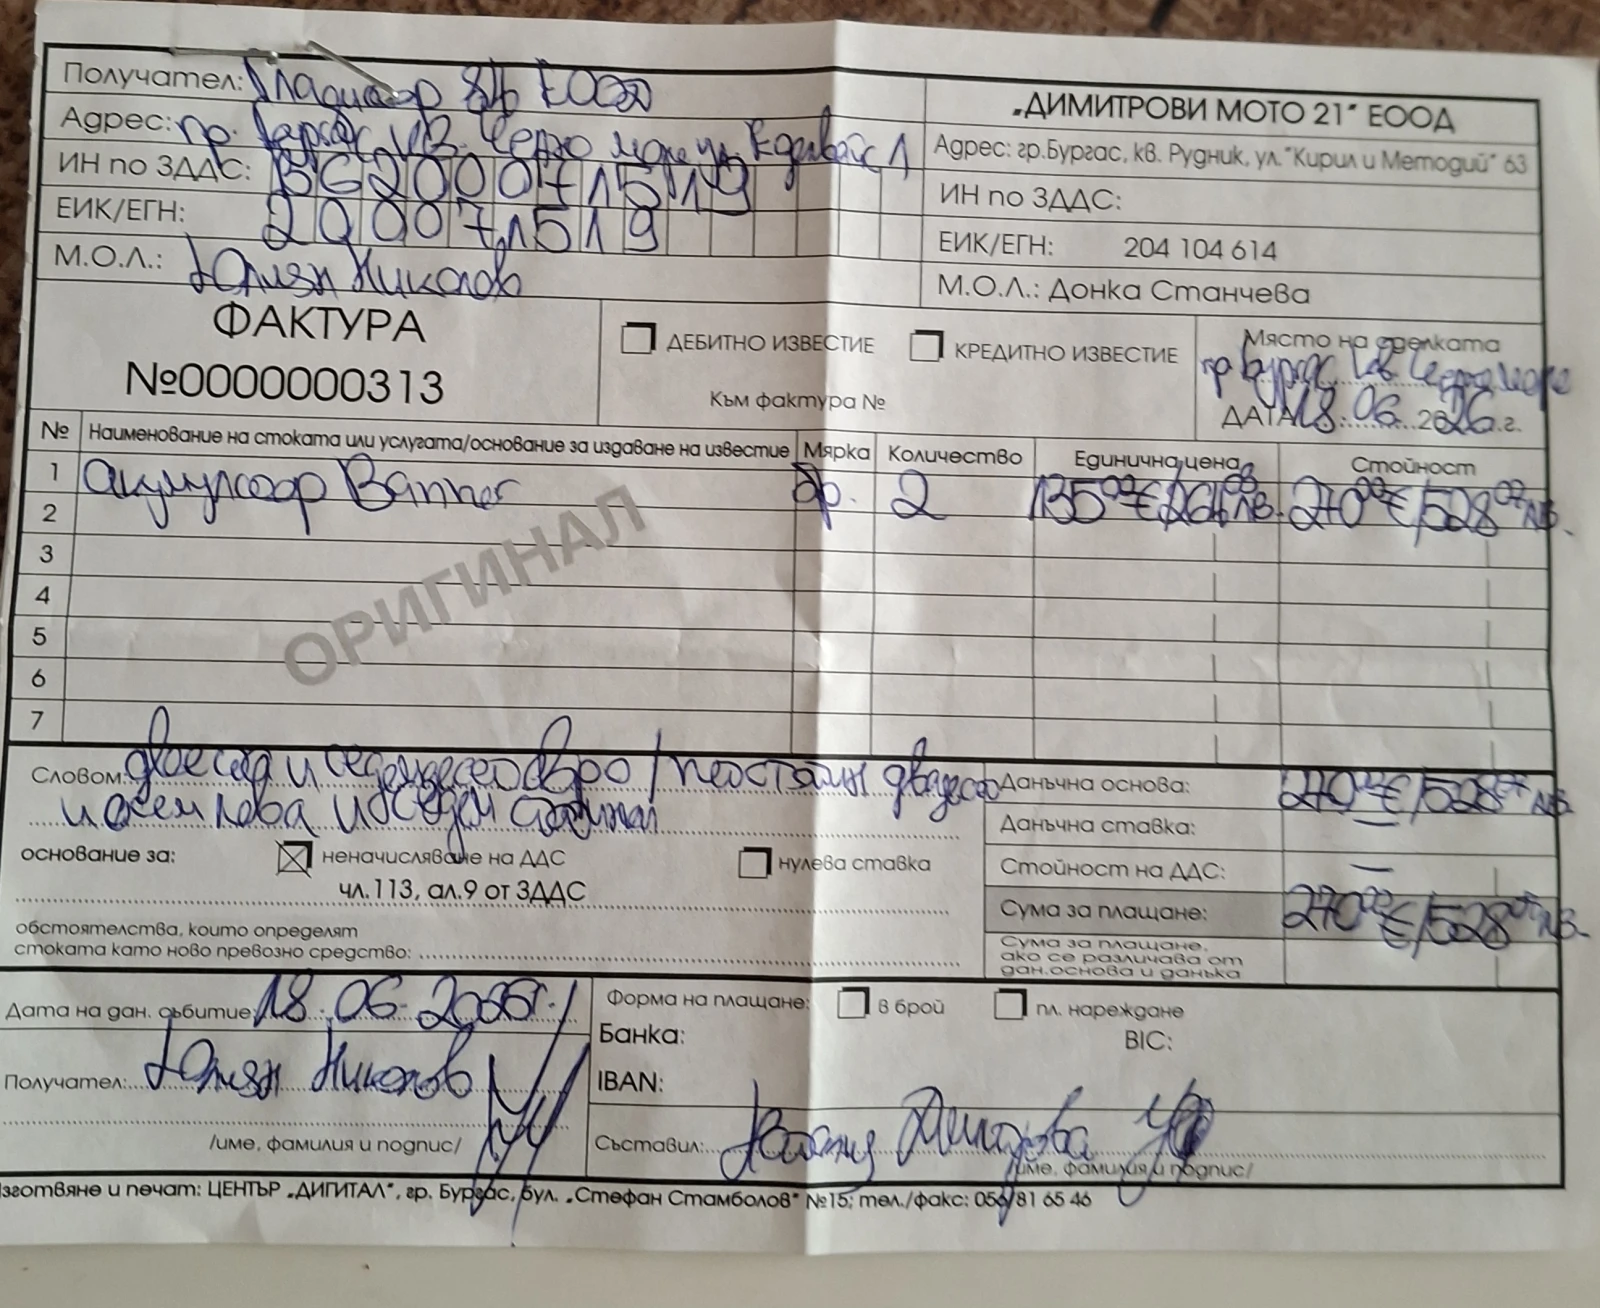 Получател: Гладиатор ЕООД
„ДИМИТРОВИ МОТО 21" ЕООД
Адрес: гр. Бургас, кв. Черно море ул. Еделвайс 1
Адрес: гр.Бургас, кв. Рудник, ул."Кирил и Методий" 63
ИН по ЗДДС: BG200071519
ИН по ЗДДС:
ЕИК/ЕГН: 200071519
ЕИК/ЕГН: 204 104 614
М.О.Л.: Юлиян Николов
М.О.Л.: Донка Станчева
ФАКТУРА
№0000000313
ДЕБИТНО ИЗВЕСТИЕ
КРЕДИТНО ИЗВЕСТИЕ
Към фактура №
Място на сделката
гр Бургас кв Черно море
ДАТА 18.06.2026.г.
№ Наименование на стоката или услугата/основание за издаване на известие Мярка Количество Единична цена Стойност
1 акумулатор Banner бр. 2 135 00 € 270 00 €/528 07 лв.
2
3
4
5
6
7
ОРИГИНАЛ
Словом: двеста и седемдесет евро/петстотин двадесет
и осем лева и седем стотинки
Данъчна основа: 270 00 €/528 07 лв.
Данъчна ставка: —
основание за: неначисляване на ДДС нулева ставка
Стойност на ДДС: —
чл.113, ал.9 от ЗДДС
Сума за плащане: 270 00 €/528 07 лв.
обстоятелства, които определят
стоката като ново превозно средство:
Сума за плащане,
ако се различава от
дан.основа и данъка
Дата на дан. събитие: 18.06.2026г.
Форма на плащане: в брой пл. нареждане
Банка: BIC:
Получател: Юлиян Николов
IBAN:
/име, фамилия и подпис/
Съставил:
/име, фамилия и подпис/
Изготвяне и печат: ЦЕНТЪР „ДИГИТАЛ", гр. Бургас, бул. „Стефан Стамболов" №15; тел./факс: 056/81 65 46